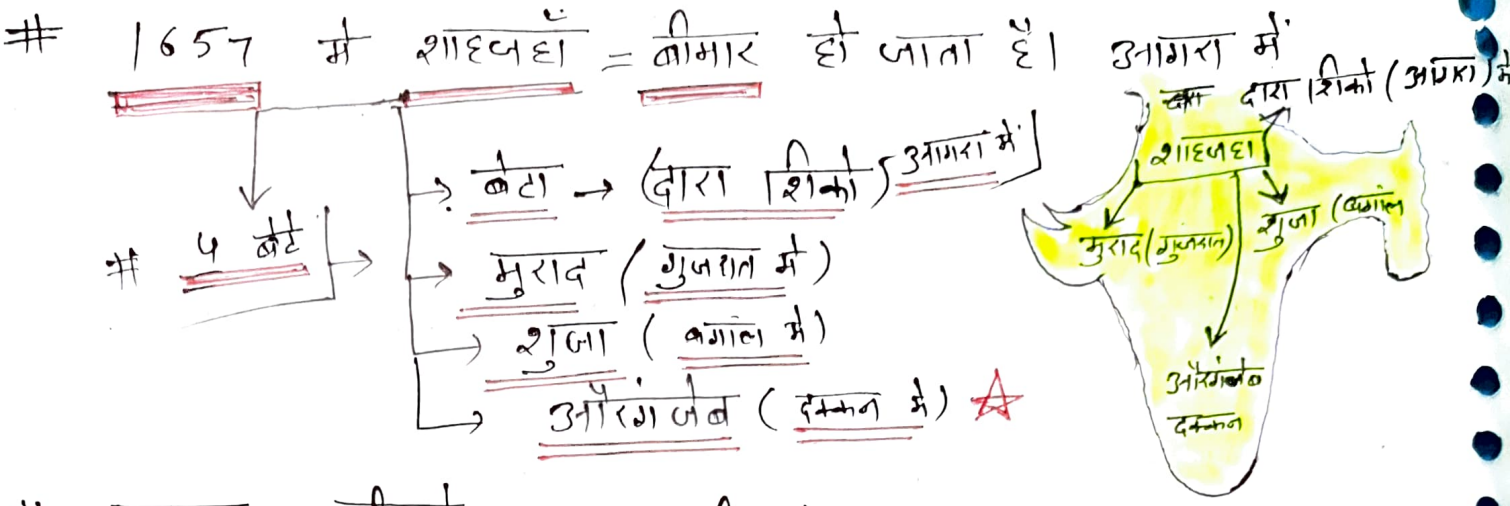 # 1657 मे शाहजहाँ = बीमार हो जाता है। आगरा में
# 4 बेटे →
→ बेटा → (दारा शिको) आगरा में
→ मुराद (गुजरात मे)
→ शुजा (बगांल मे)
→ औरंगजेब (दक्कन मे) ☆
दारा शिको (आगरा) मे
शाहजहा
मुराद (गुजरात)
शुजा (बगांल
औरंगजेब
दक्कन